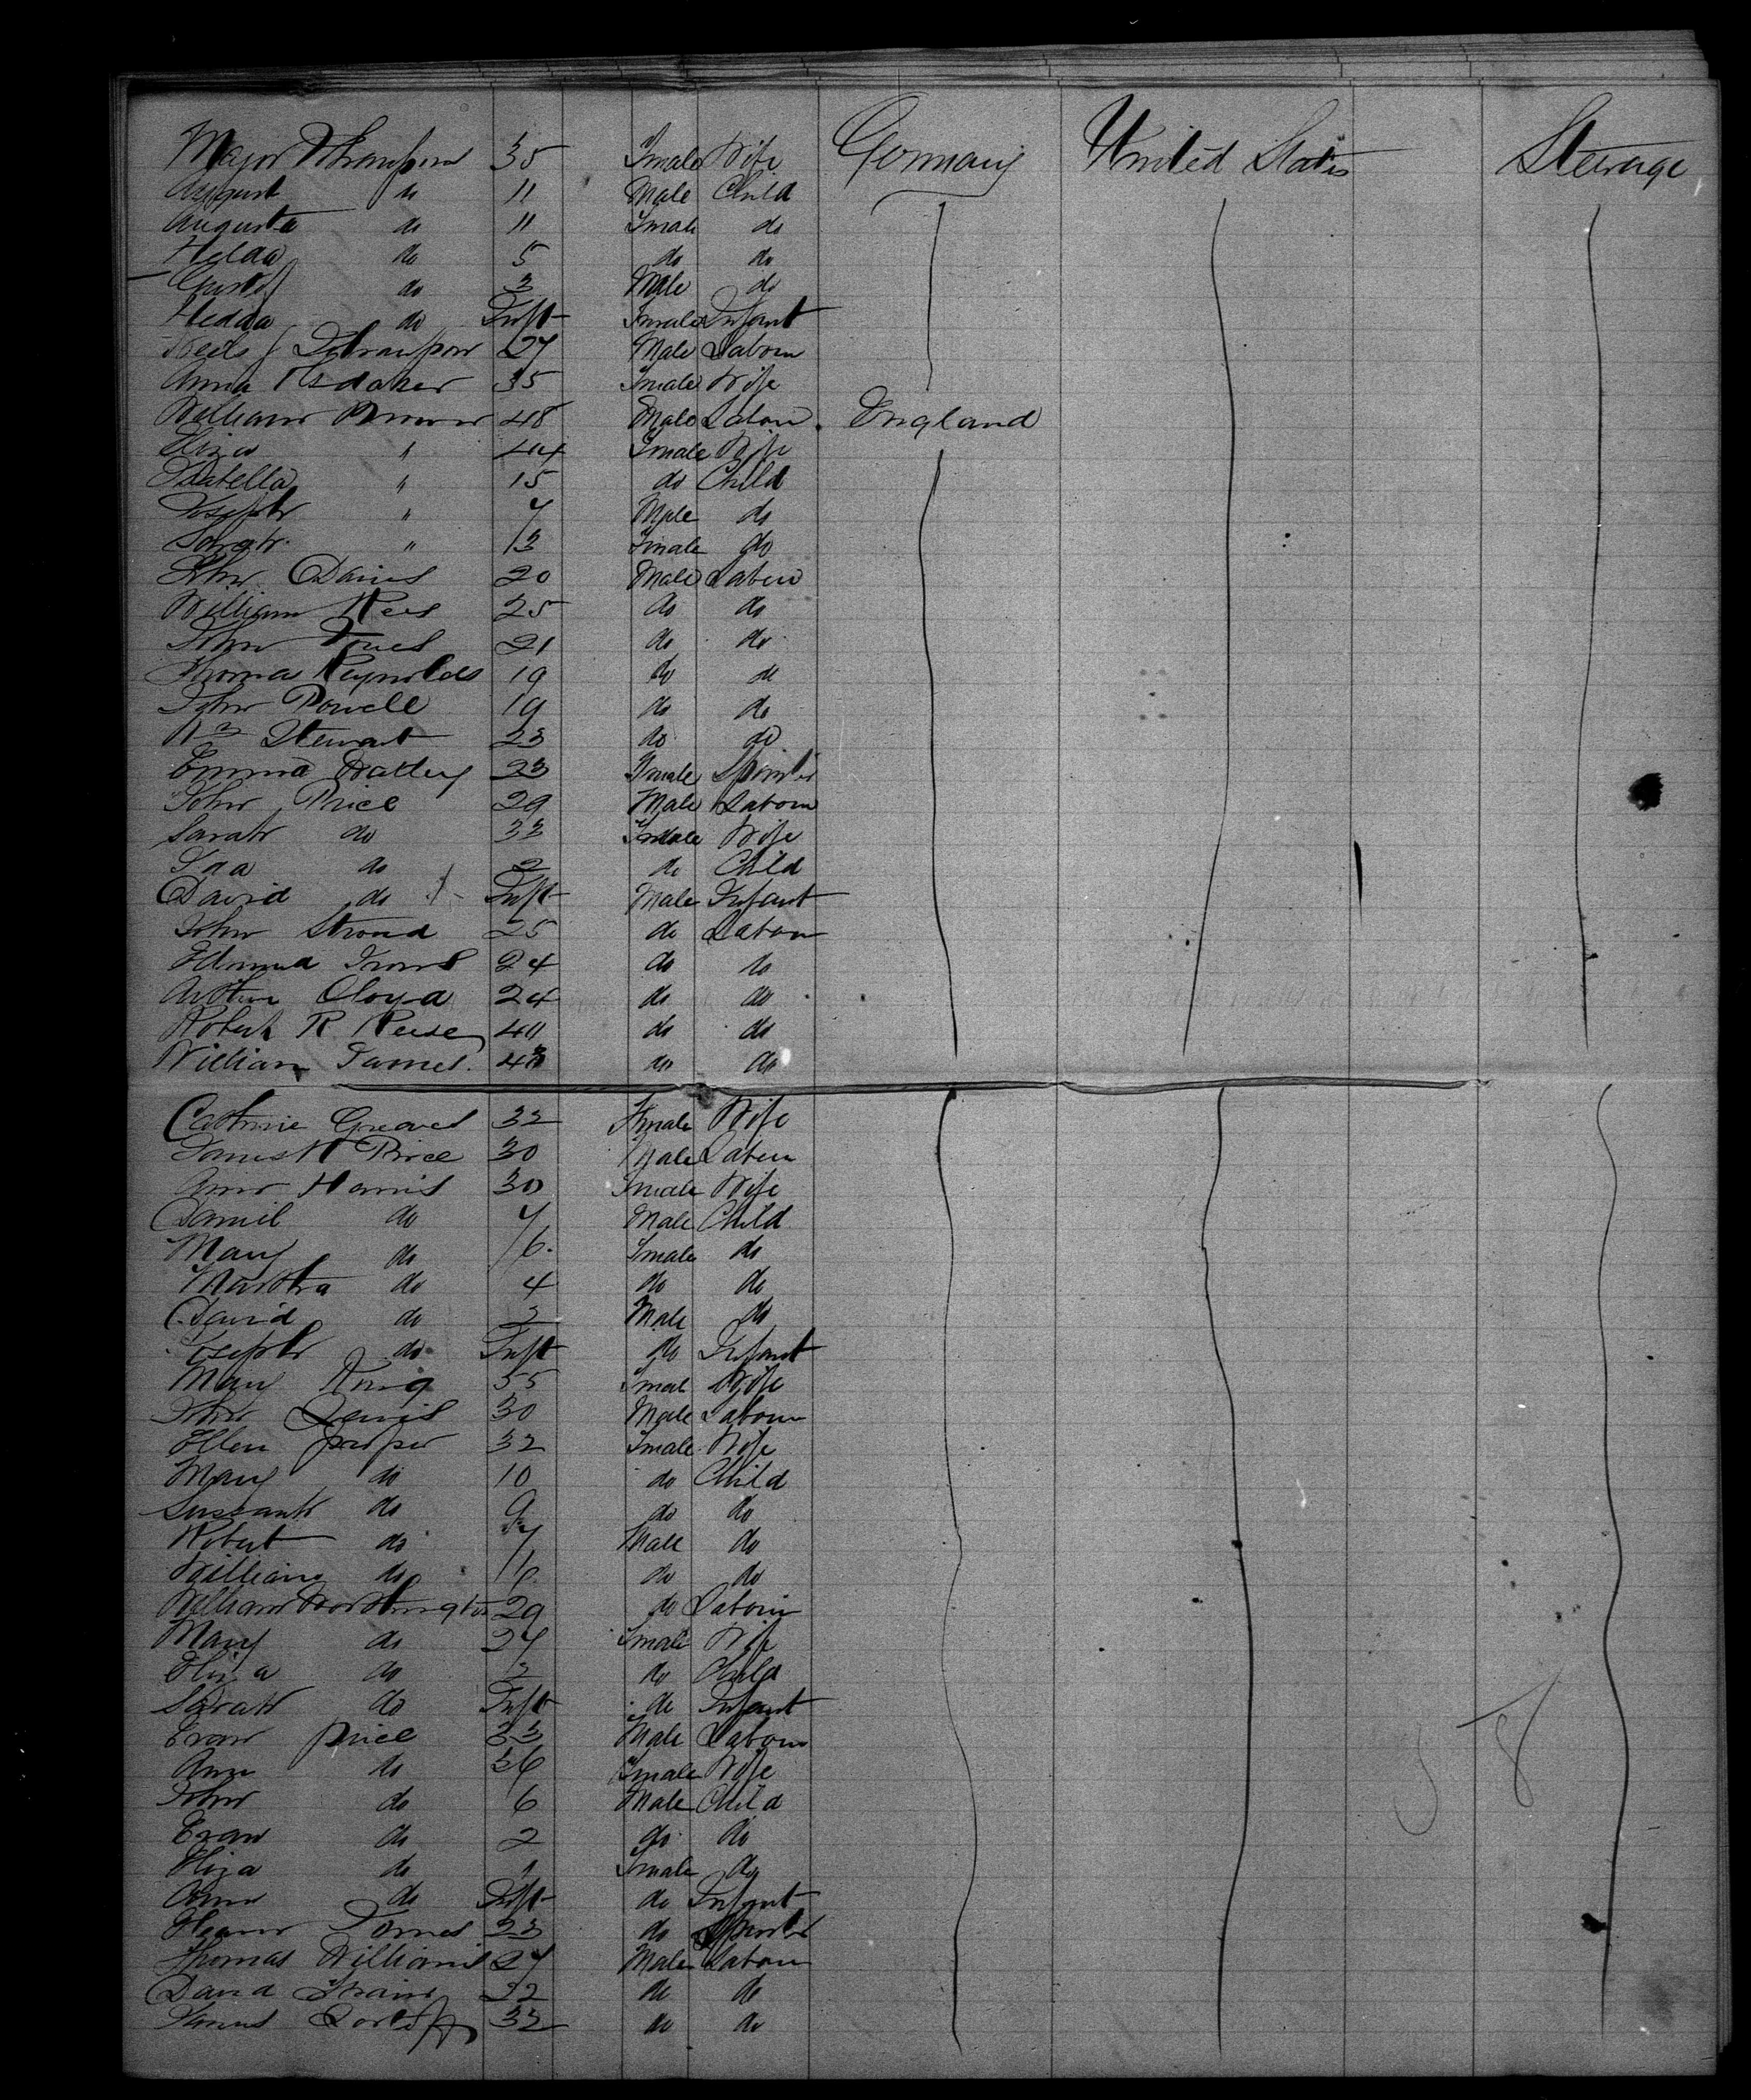 Major 35 Female Wife Germany United States Steerage
August do 11 Male Child
Augusta do 11 Female do
Helda do 5 do do
Gustaf do 3 Male do
Hedda do Inft Female Infant
27 Male Labour
Anna 35 Female Wife
William 48 Male Labour England
Eliza " 44 Female Wife
Isabella " 15 do Child
Joseph " 7 Male do
Sarah " 13 Female do
John Davies 20 Male Labour
William Rees 25 do do
John Jones 21 do do
Thomas Reynolds 19 do do
John Powell 19 do do
Wm Stewart 23 do do
Emma 23 Female Spinster
John Price 29 Male Labour
Sarah do 33 Female Wife
Ida do 2 do Child
David do Inft Male Infant
John Stroud 25 do Labour
Edmund 24 do do
Arthur Cloyd 24 do do
Robert R. Reese do do
William James do do
Cathrine Greaves 32 Female Wife
James H Price 30 Male Labour
Ann Harris 30 Female Wife
Daniel do 7 Male Child
Mary do 6 Female do
Martha do 4 do do
David do 2 Male do
Joseph do Inft do Infant
Mary King 55 Female Wife
John Lewis 30 Male Labour
Ellen 32 Female Wife
Mary do 10 do Child
Sussanh do 9 do do
Robert do 7 Male do
William do do do
William Worthington 29 do Labour
Mary do 27 Female Wife
Eliza do do Child
Sarah do Inft do Infant
Evan Price 33 Male Labour
Ann do 36 Female Wife
John do 6 Male Child
Evan do 2 do do
Eliza do 1 Female do
Ann do Inft do Infant
Jones 23 do Spinster
Thomas Williams 27 Male Labour
David 32 do do
James 32 do do
58